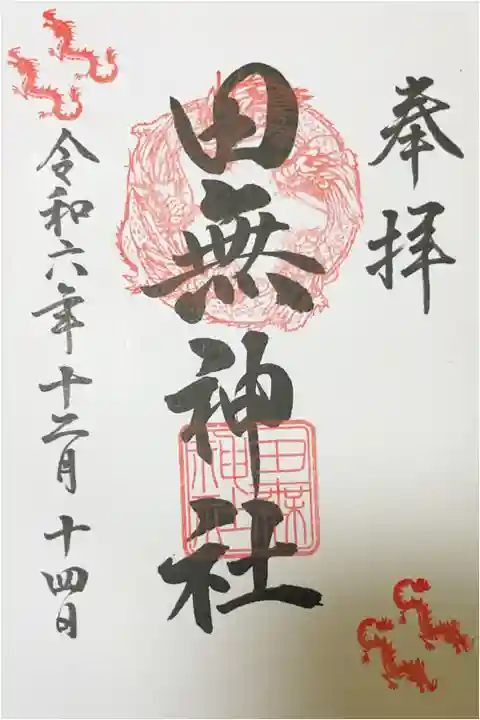 奉拝
田無神社
田無神社
令和六年十二月十四日